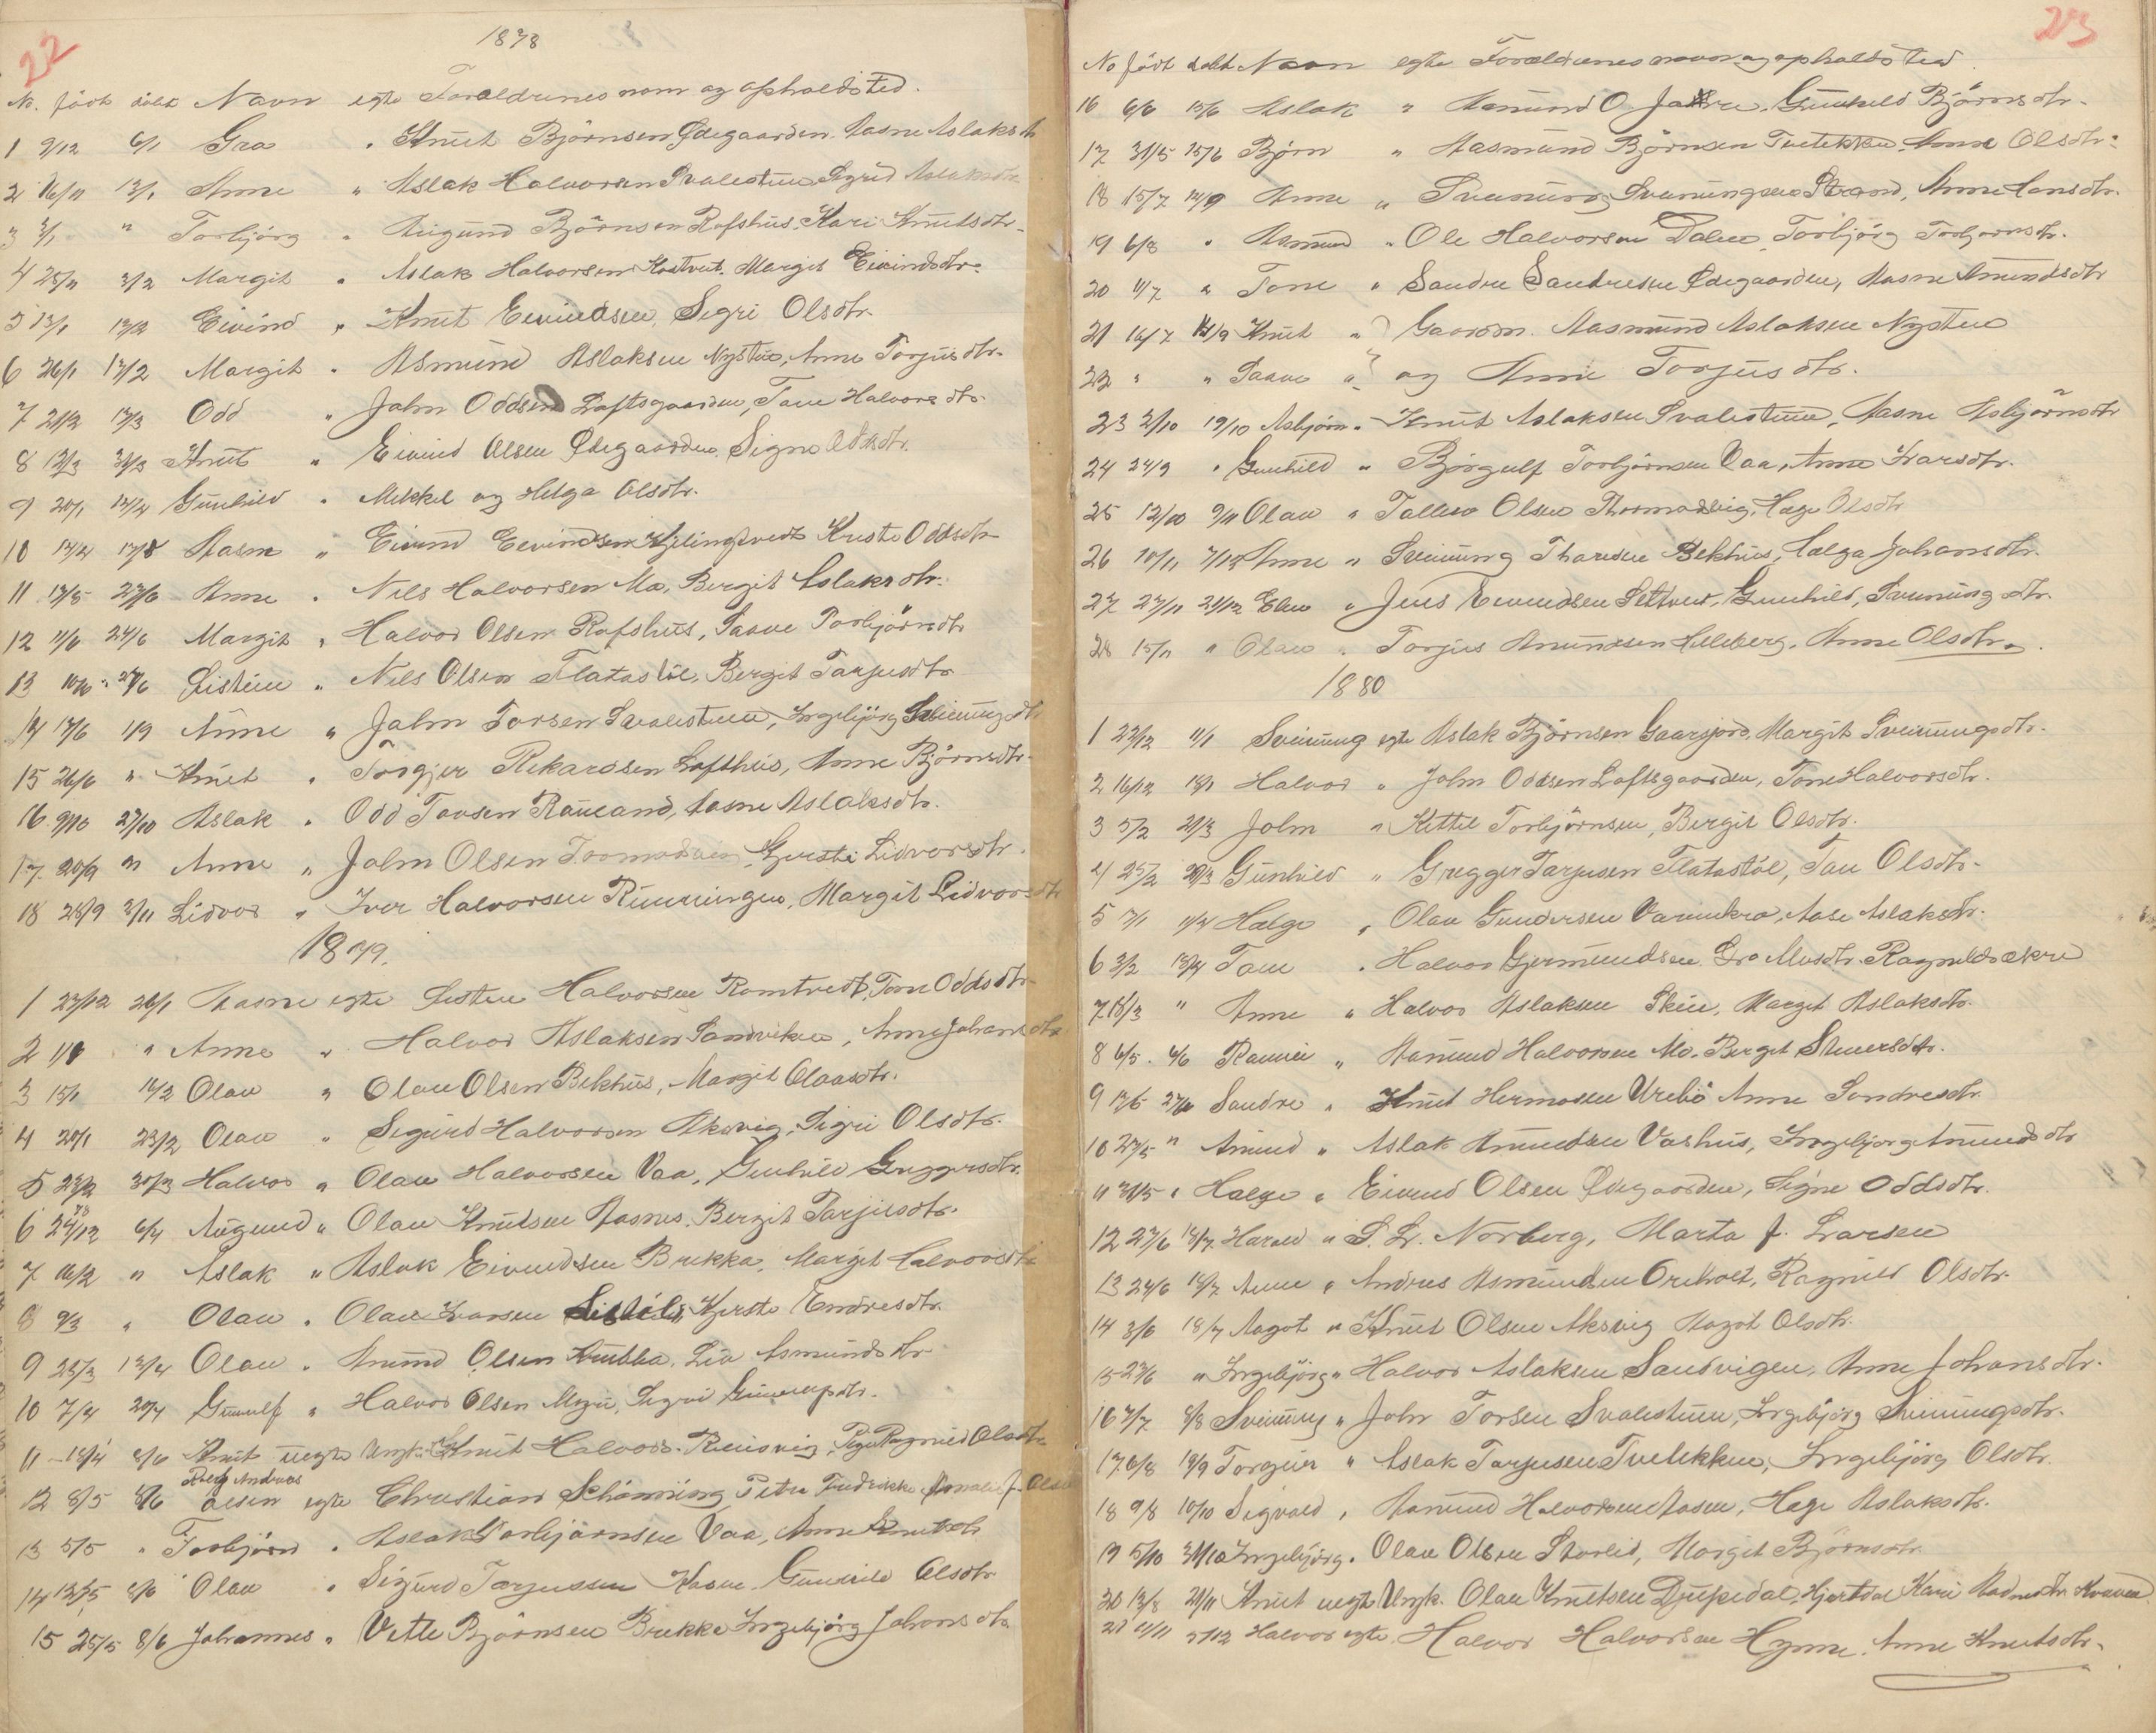 22
1878
No. född dält Navn egte Foraldrenes navn og opholdsted.
1 9/12 6/1 Gro " Knut Björnsen Ødegaarden. Aasne Aslaksdt
2 16/11 13/1 Anne " Aslak Halvorsen Svalestuen Sigrid Aslaksdtr
3 3/1 " Torbjörg " Augund Björnsen Rofshus. Kari Knutsdtr.
4 25/11 3/2 Margit " Aslak Halvorsen Kostveit. Margit Eivindsdtr.
5 13/1 Eivind " Knut Eivindsen, Sigri Olsdtr.
6 26/1 17/2 Margit " Asmund Aslaksen Nystu, Anne Torjusdtr.
7 21/2 17/3 Odd " John Oddsen Loftsgaarden, Tone Halvorsdtr.
8 12/3 31/3 Knut " Eivind Olsen Ødegaarden. Signe Oddsdtr.
9 20/1 Gunhild " Mikkel og Helga Olsdtr.
10 Aasne " Eivind Eivindsen Kjelingtvedt Kristi Oddsdtr
11 27/6 Anne " Nils Halvorsen Mo, Bergit Aslaksdtr.
12 11/6 24/6 Margit " Halvor Olsen Rofshus, Saave Torbjörnsdtr
13 Eisten " Nils Olsen Flatastöl, Bergit Tarjusdtr
14 17/6 1/9 Anne " John Torsen Svalestuen, Ingebjörg Sveinungsdt
15 26/6 " Knut " Torgjer Rikardsen Lofthus, Anne Björnsdtr.
16 27/10 Aslak " Odd Tovsen Rauland, Aasne Aslaksdtr.
17 20/9 " Anne " John Olsen Gersti Lidvorsdtr.
18 28/9 3/11 Lidvor " Iver Halvorsen Runningen, Margit Lidvorsdt
1879.
1 27/12 26/1 Aasne egte Eisten Halvorsen Romtvedt, Tone Oddsdtr
2 " Anne " Halvor Aslaksen Sandviken, Anne Johansdtr
3 15/1 Olav " Olav Olsen Bekhus, Margit Olavsdtr.
4 20/1 23/2 Olav " Sigurd Halvorsen Aksvig, Sigri Olsdtr.
5 23/2 30/3 Halvor " Olav Halvorsen Vaa, Gunhild Greggersdtr.
6 29/12 78 6/4 Augund " Olav Knutsen Aasnes, Bergit Tarjusdtr.
7 16/2 " Aslak " Aslak Eivindsen Brekka, Margit Halvorsdt
8 9/3 " Olav " Olav Larsen Kjersti Endresdtr.
9 23/3 13/4 Olav " Amund Olsen Krubba, Liv Asmundsdtr
10 7/4 20/4 Gunnulf " Halvor Olsen Mogn, Sigrid
11 18/4 8/6 Knut uegte Ungk. Knut Halvors. Reinsvig, Pige Ragnild Olsdtr
12 8/5 8/6 Andreas Olsen egte Christian Schönning Petra Fredrikke
13 5/5 " Torbjörn " Aslak Torbjörnsen Vaa, Anne Knutsdtr
14 13/5 8/6 Olav " Sigurd Torjussen Gunnild Olsdtr
15 25/5 8/6 Johannes " Vetle Björnsen Brekke Ingebjörg Johansdtr.
23
No född dält Navn egte Foraldrenes navn og opholdsted.
16 6/6 15/6 Aslak " Aamund O. Gunhild Björnsdtr.
17 31/5 15/6 Björn " Aasmund Björnsen Tveitekka. Anne Olsdtr.
18 15/7 14/9 Anne " Sveinung Sveinungsen Strand, Anne Hansdtr.
19 6/8 " Asmund " Ole Halvorsen Dalen, Torbjörg Torbjörnsdtr.
20 11/7 " Tone " Sandre Sandresen Ødegaarden, Aasne Amundsdtr
21 16/7 14/9 Knut " } Gaardm. Aasmund Aslaksen Nysten
22 " " Saave " } og Anne Torjusdtr.
23 2/10 19/10 Asbjörn " Knut Aslaksen Svalestuen, Aasne Asbjörnsdtr
24 24/9 " Gunhild " Björgulf Torbjörnsen Vaa, Anne Ivarsdtr.
25 12/10 9/11 Olav " Tallev Olsen Thormodsvig, Hæge Olsdtr
26 10/11 7/12 Anne " Sveinung Tharesen Bekhus, Hælga Johansdtr.
27 27/11 21/12 Elen " Jens Eivindsen Seltveit, Gunhild, Sveinungsdtr.
28 15/11 " Olav " Torjus Amundsen Lilleberg, Anne Olsdtr.
1880
1 22/12 11/1 Sveinung egte Aslak Björnsen Gaarsjord, Margit Sveinungsdtr.
2 16/12 18/1 Halvor " John Oddsen Loftsgaarden, Tone Halvorsdtr.
3 5/2 21/3 John " Kittil Torbjörnsen, Bergit Olsdtr.
4 25/2 29/3 Gunhild " Gregger Tarjusen Flatastöl, Tone Olsdtr.
5 7/1 11/4 Hælge " Olav Gundersen Varmekra, Aase Aslaksdtr.
6 3/2 18/4 Tone " Halvor Gjermundsen. Gro Aasdtr. Ragnildsækre
7 18/3 " Anne " Halvor Aslaksen Skin, Margit Aslaksdtr.
8 6/5 6/6 Ranvei " Aamund Halvorsen Mo. Bergit Stenersdtr.
9 27/6 Sandre " Knut Hermosen Urebö Anne Sondresdtr.
10 27/5 " Amund " Aslak Amundsen Vashus, Ingebjorg Amundsdtr
11 31/5 " Hælge " Eivind Olsen Ødegaarden, Signe Oddsdtr.
12 27/6 18/7 Harald " S. L. Norberg, Marta J. Larsen
13 24/6 18/7 Anne " Andres Asmundsen Oreholt, Ragnild Olsdtr.
14 3/6 18/7 Aagot " Knut Olsen Aksvig Aagot Olsdtr.
15 27/6 " Ingebjörg " Halvor Aslaksen Sandvigen, Anne Johansdtr.
16 7/7 8/8 Sveinung " John Torsen Svalestuen, Ingebjörg Sveinungsdtr.
17 6/8 19/9 Torgeir " Aslak Tarjusen Tveitekken, Ingebjörg Olsdtr.
18 9/8 10/10 Sigvald " Aamund Halvorsen Aasen, Hæge Aslaksdtr.
19 5/10 31/10 Ingebjörg " Olav Olsen Storlid, Margit Björnsdtr.
20 13/8 21/11 Knut uegte Ungk. Olav Knutsen Djupedal, Hjartdal Kari
21 11/11 5/12 Halvor egte Halvor Halvorsen Hynne. Anne Knutsdtr.